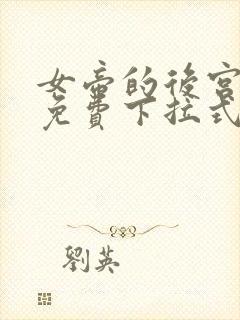 女帝的後宮
免費下拉式
劉英